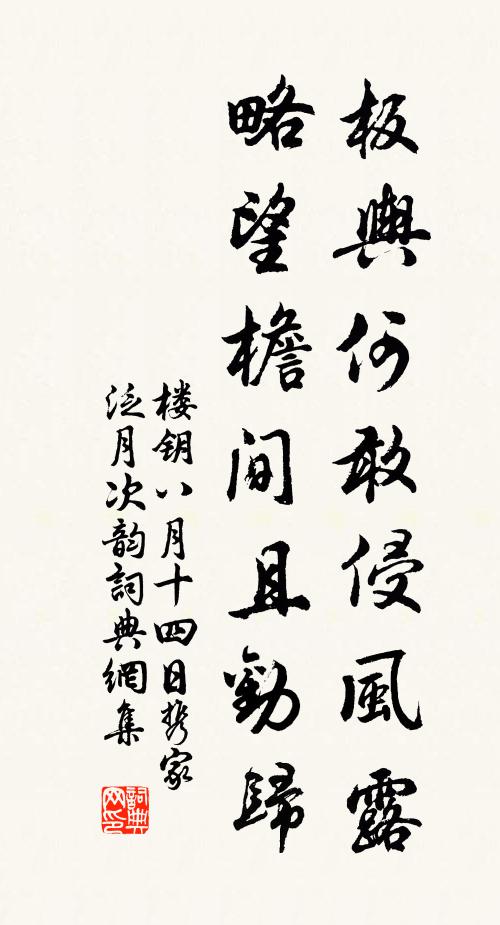 板輿何敢侵風露
略望檐間且勸歸
楼钥八月十四日携家
泛月次韵詞典網集
詞典网印